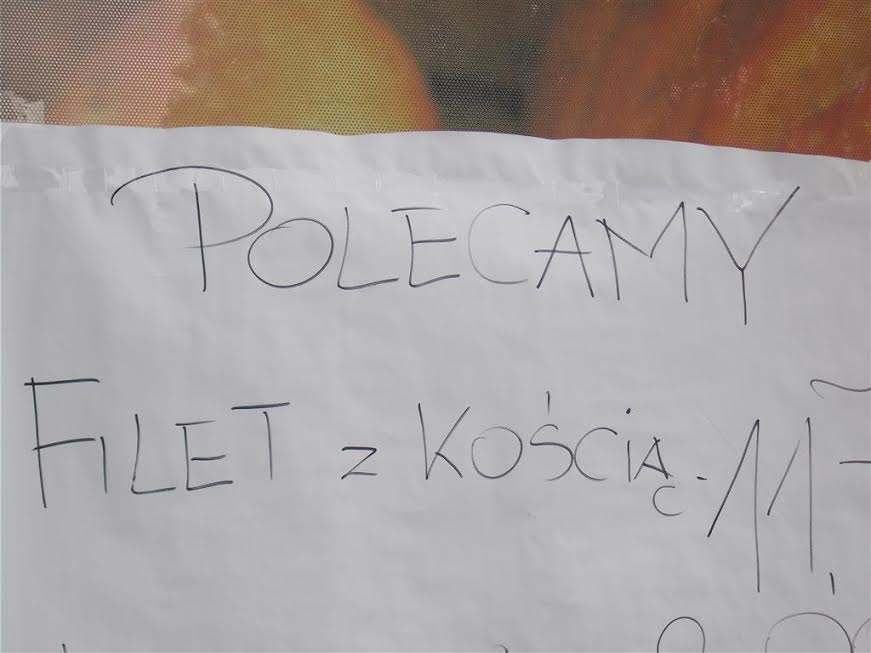 POLECAMY
FILET z KOŚCIĄ - 11,-